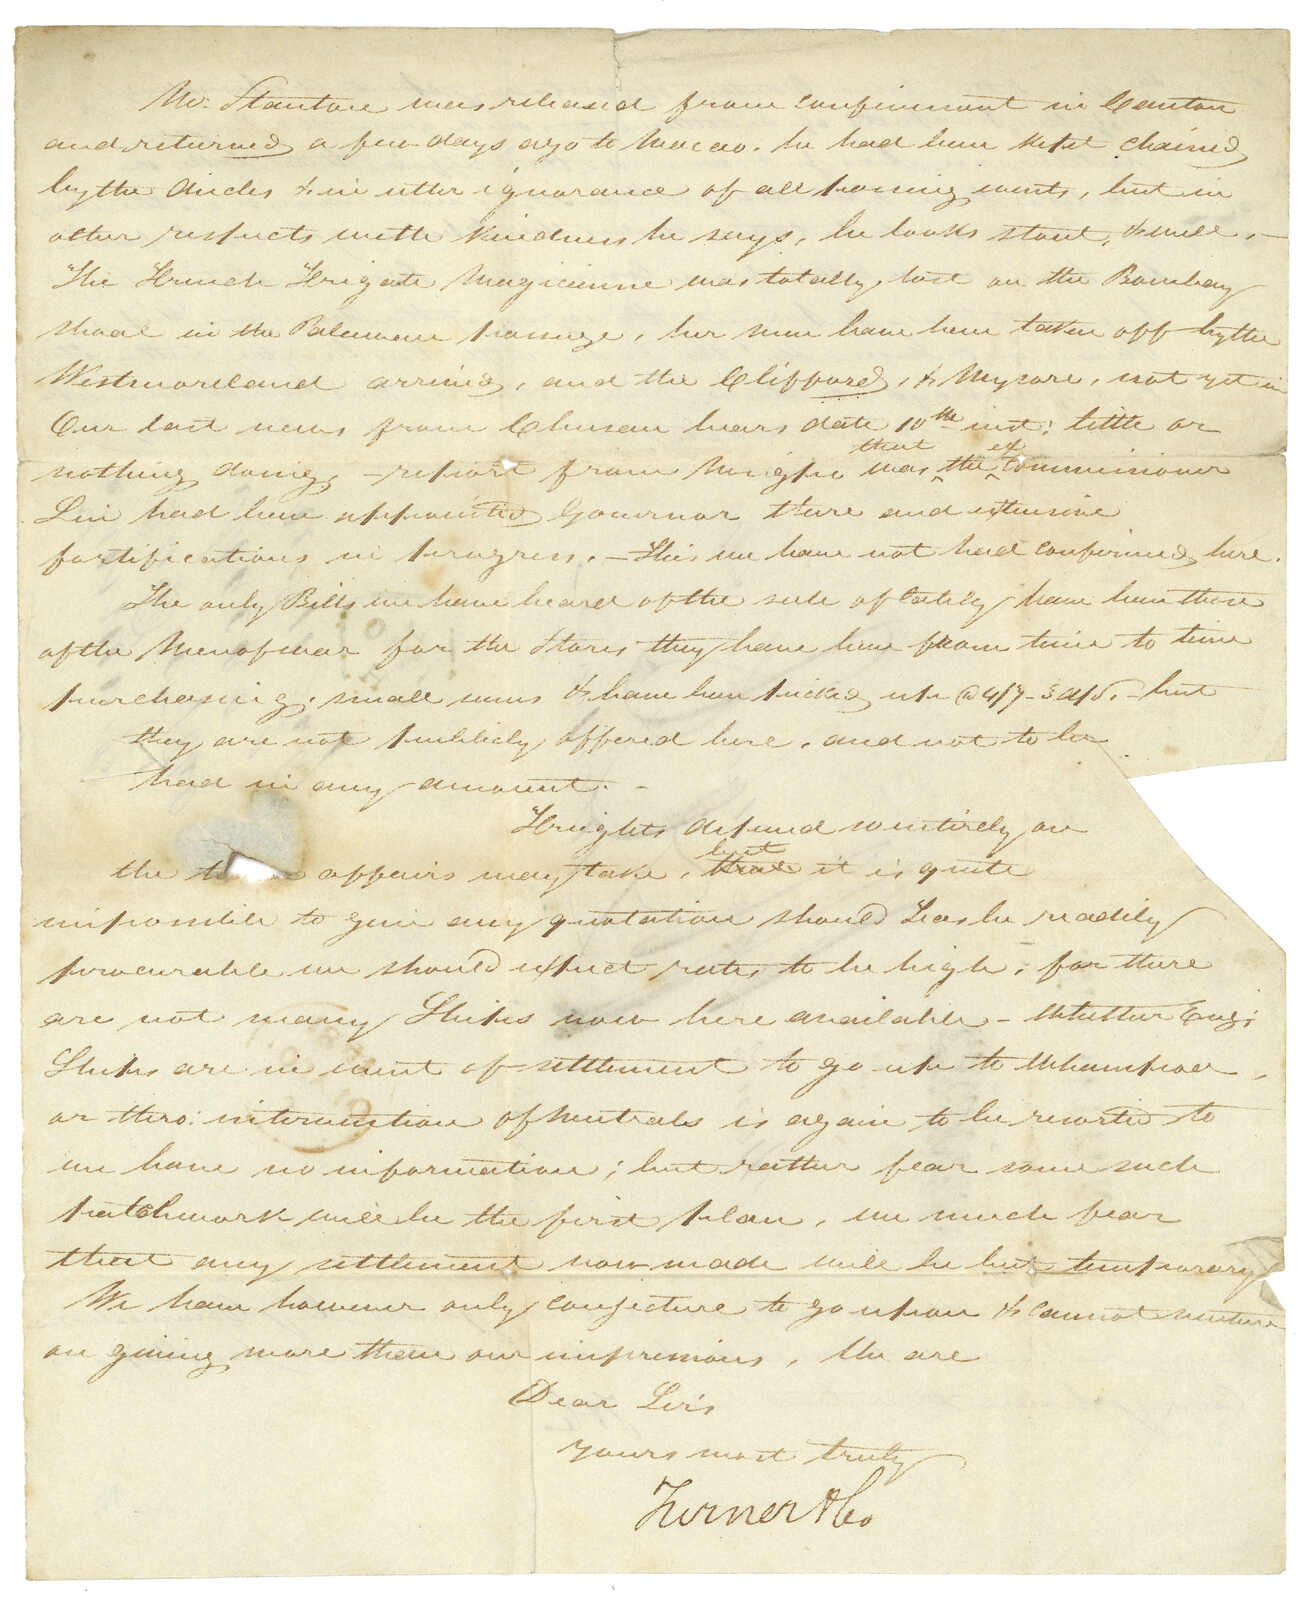 Mr. Stanton was released from confinement in Canton
and returned a few days ago to Macao. he had been kept chained
by the Ancles & in utter ignorance of all passing events, but in
other respects with kindness he says, he looks stout, & well. —
The French Frigate Magicienne was totally lost on the Bombay
shoal in the Palawan passage, her men have been taken off by the
Westmoreland arrived, and the Clifford, & Mysore, not yet in
Our last news from Chusan bears date 10th inst: little or
nothing doing, - report from Ningpo was that the ex Commissioner
Lin had been appointed Governor there and extensive
fortifications in progress. — This we have not had confirmed here.
The only Bills we have heard of the sale of lately have been those
of the Men of war for the Stores they have been from time to time
purchasing, small sums & have been picked up @ 4/7 -
but
they are not publicly offered here, and not to be
had in any amount. -
Freights depend so entirely on
the affairs may take, but it is quite
impossible to give any quotation should Teas be readily
procurable we should expect rates to be high, for there
are not many Ships now here available - Whether Eng:
Ships are in event of settlement to go up to Whampoa,
or thro: intervention of Neutrals is again to be resorted to
we have no information; but rather fear some such
patchwork will be the first plan, we much fear
that any settlement now made will be but temporary
We have however only conjecture to go upon & cannot venture
on giving more than our impressions, We are
Dear Sirs
Yours most truly
Turner & Co